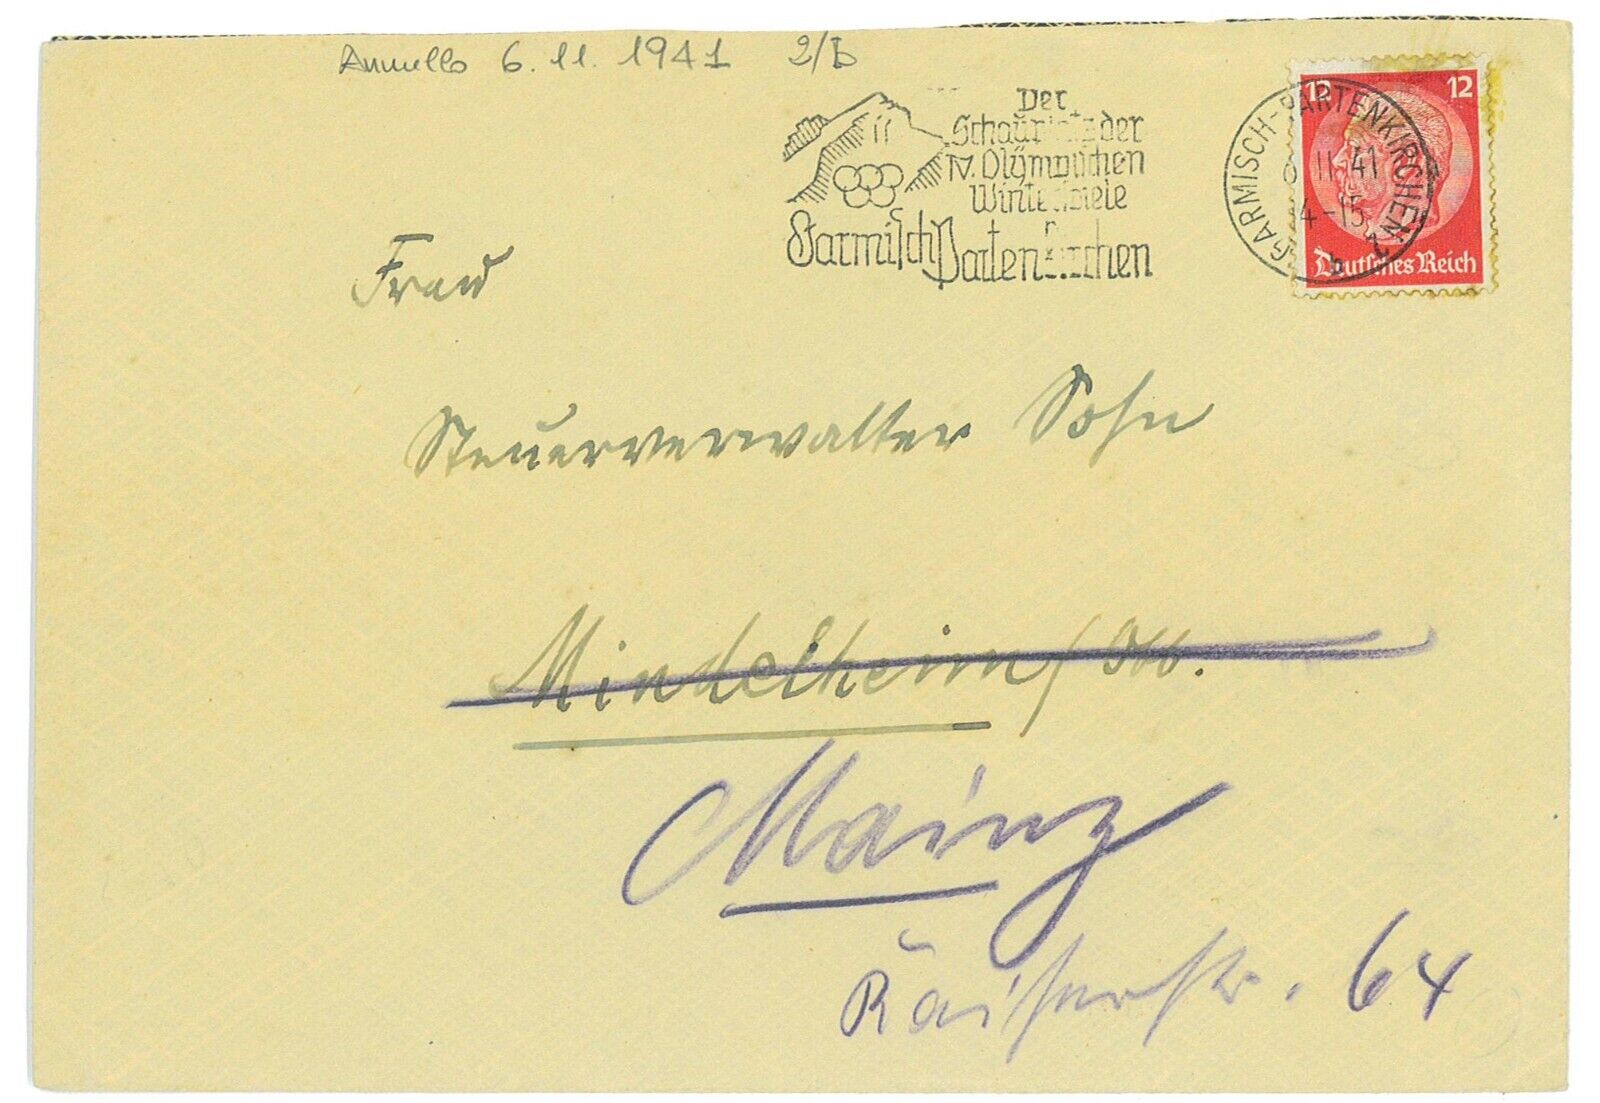 Annullo 6.11.1941 2/b
Der
Schauplatz der
IV. Olympischen
Winterspiele
Garmisch Partenkirchen
GARMISCH-PARTENKIRCHEN 2
6 11 41
14-15
b
12 12
Deutsches Reich
Frau
Steuerverwalter Sohn
Mindelheim/Obb.
Mainz
Kaiserstr. 64